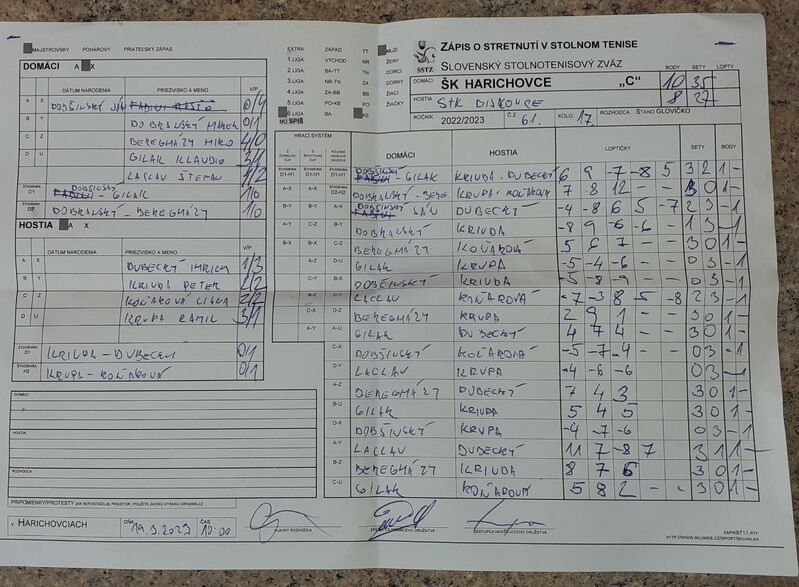 MAJSTROVSKÝ POHÁROVÝ PRIATEĽSKÝ ZÁPAS
DOMÁCI A X
DÁTUM NARODENIA PRIEZVISKO A MENO V/P
A X DOBŠINSKÝ JÁN 0/4
B Y DOBRANSKÝ MAREK 0/1
C Z BEREGHÁZY MIRO 4/0
D U GILAK KLAUDIO 3/1
LACLAV ŠTEFAN 1/2
ŠTVORHRA D1 DOBŠINSKÝ - GILAK 1/0
DOBRANSKÝ - BEREGHÁZY 1/0
HOSTIA A X
DÁTUM NARODENIA PRIEZVISKO A MENO V/P
A X DUBECKÝ IMRICH 1/3
B Y KRIVDA PETER 2/2
C Z KOŇAROVÁ 2/2
D U KRUPA KAMIL 3/1
ŠTVORHRA D1 KRIVDA - DUBECKÝ 0/1
ŠTVORHRA H2 KRUPA - KOŇAROVÁ 0/1
DOMÁCI
HOSTIA
ROZHODCA
PRIPOMIENKY/PROTESTY (AK NEPOSTAČUJE PRIESTOR, POUŽITE ZADNÚ STRANU ORIGINÁLU)
V HARICHOVCIACH DŇA 19.3.2023 ČAS 10:00
HLAVNÝ ROZHODCA ZÁSTUPCA DOMÁCEHO DRUŽSTVA ZÁSTUPCA HOSŤUJÚCEHO DRUŽSTVA
EXTRA ZÁPAD TT MUŽI
1.LIGA VÝCHOD NR ŽENY
2.LIGA BA-TT TN DORCI
3.LIGA NR-TN ZA DORKY
4.LIGA ZA-BB BB ŽIACI
5.LIGA PO-KE PO ŽIAČKY
6.LIGA BA KE
MO SPIŠ
SSTZ
ZÁPIS O STRETNUTÍ V STOLNOM TENISE
SLOVENSKÝ STOLNOTENISOVÝ ZVÄZ BODY SETY LOPTY
DOMÁCI ŠK HARICHOVCE „C" 10 35
HOSTIA STK DISKOURE 8 27
ROČNÍK 2022/2023 Č.Z. 61. KOLO: 17. ROZHODCA: STANO GLOVIČKO
HRACÍ SYSTÉM DOMÁCI HOSTIA LOPTIČKY SETY BODY
D1-H1 DOBŠINSKÝ - GILAK KRIVDA - DUBECKÝ 6 9 -7 -8 5 3 2 1 -
D2-H2 DOBRANSKÝ - BERE. KRUPA - KOŇAROVÁ 7 8 12 - - 3 0 1 -
A-Y DOBŠINSKÝ JÁN DUBECKÝ -4 -8 6 5 -7 2 3 - 1
B-Y DOBRANSKÝ KRIVDA -8 9 -6 -6 - 1 3 - 1
BEREGHÁZY KOŇAROVÁ 5 6 7 - - 3 0 1 -
D-U GILAK KRUPA -5 -4 -6 - - 0 3 - 1
DOBŠINSKÝ KRIVDA -5 -8 -9 - - 0 3 - 1
LACLAV KOŇAROVÁ -7 -3 8 5 -8 2 3 - 1
BEREGHÁZY KRUPA 2 9 1 - - 3 0 1 -
GILAK DUBECKÝ 4 7 4 - - 3 0 1 -
DOBŠINSKÝ KOŇAROVÁ -5 -7 -4 - - 0 3 - 1
D-Y LACLAV KRUPA -4 -6 -6 0 3 - 1
A-Z BEREGHÁZY DUBECKÝ 7 4 3 3 0 1 -
B-U GILAK KRIVDA 5 4 5 3 0 1 -
D-X DOBŠINSKÝ KRUPA -4 -7 -6 0 3 - 1
A-Y LACLAV DUBECKÝ 11 7 -8 7 3 1 1 -
B-Z BEREGHÁZY KRIVDA 8 7 6 3 0 1 -
C-U GILAK KOŇAROVÁ 5 8 2 - - 3 0 1 -
ZAPISST17.RTF
HTTP://WWW.MUJWEB.CZ/SPORT/MICHALKA